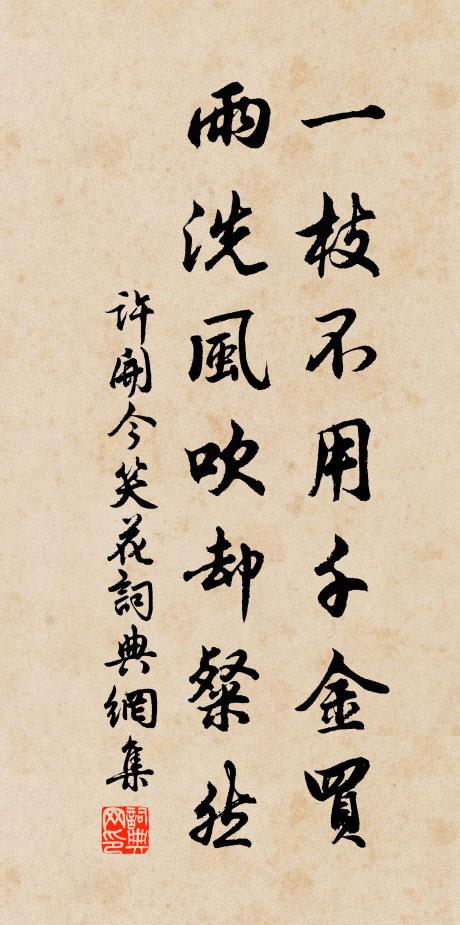 一枝不用千金買
雨洗風吹却粲然
許開令笑花詞典網集
詞典網印